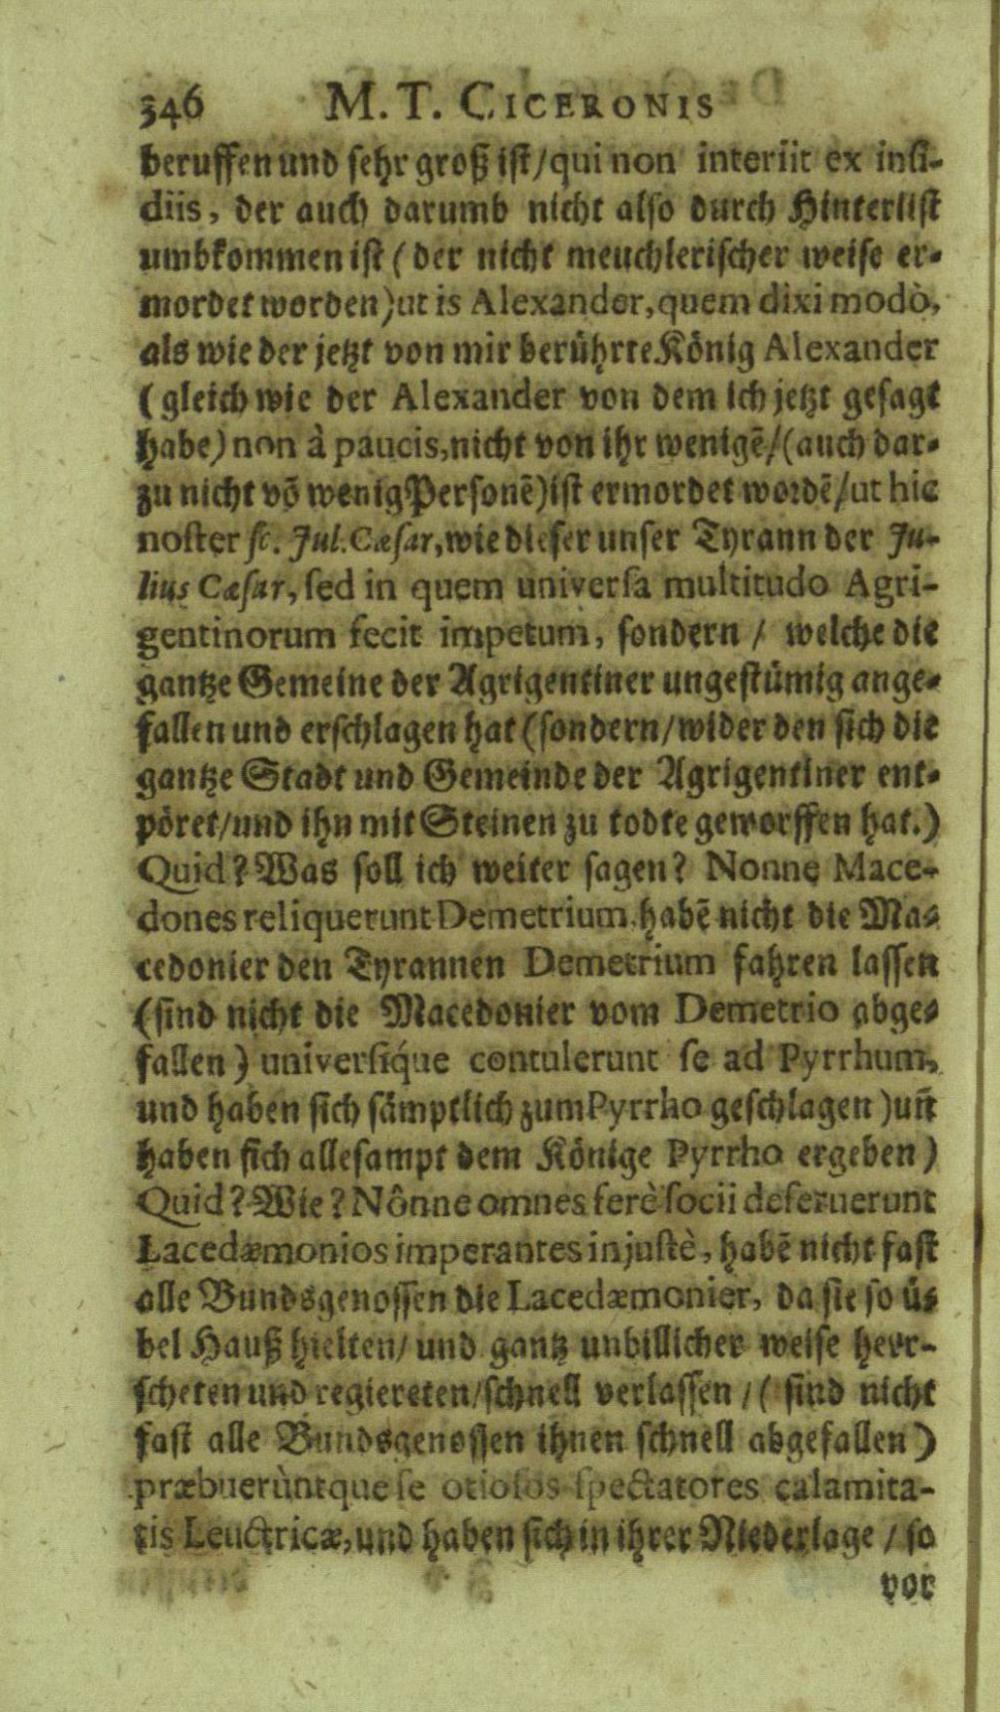 346 M. T. CICERONIS
beruffen und sehr groß ist/qui non interiit ex insi-
diis, der auch darumb nicht also durch Hinterlist
umbkommen ist (der nicht meuchlerischer weise er-
mordet worden) ut is Alexander, quem dixi modò,
als wie der jetzt von mir berührte König Alexander
(gleich wie der Alexander von dem ich jetzt gesagt
habe) non à paucis, nicht von ihr wenigē/(auch dar-
zu nicht vō wenig Personē) ist ermordet wordē/ut hic
noster sc. Jul. Cæsar, wie dieser unser Tyrann der Ju-
lius Cæsar, sed in quem universa multitudo Agri-
gentinorum fecit impetum, sondern / welche die
gantze Gemeine der Agrigentiner ungestümig ange-
fallen und erschlagen hat (sondern/wider den sich die
gantze Stadt und Gemeinde der Agrigentiner ent-
pöret/und ihn mit Steinen zu todte geworffen hat.)
Quid? Was soll ich weiter sagen? Nonne Mace-
dones reliquerunt Demetrium, habē nicht die Ma-
cedonier den Tyrannen Demetrium fahren lassen
(sind nicht die Macedonier vom Demetrio abge-
fallen) universíque contulerunt se ad Pyrrhum,
und haben sich sämptlich zum Pyrrho geschlagen) uñ
haben sich allesampt dem Könige Pyrrho ergeben)
Quid? Wie? Nônne omnes ferè socii deseruerunt
Lacedæmonios imperantes injustè, habē nicht fast
alle Bundsgenossen die Lacedæmonier, da sie so ü-
bel Hauß hielten/ und gantz unbillicher weise herr-
scheten und regiereten/schnell verlassen /( sind nicht
fast alle Bundsgenossen ihnen schnell abgefallen)
præbuerùntque se otiosos spectatores calamita-
tis Leuctricæ, und haben sich in ihrer Niederlage / so
vor